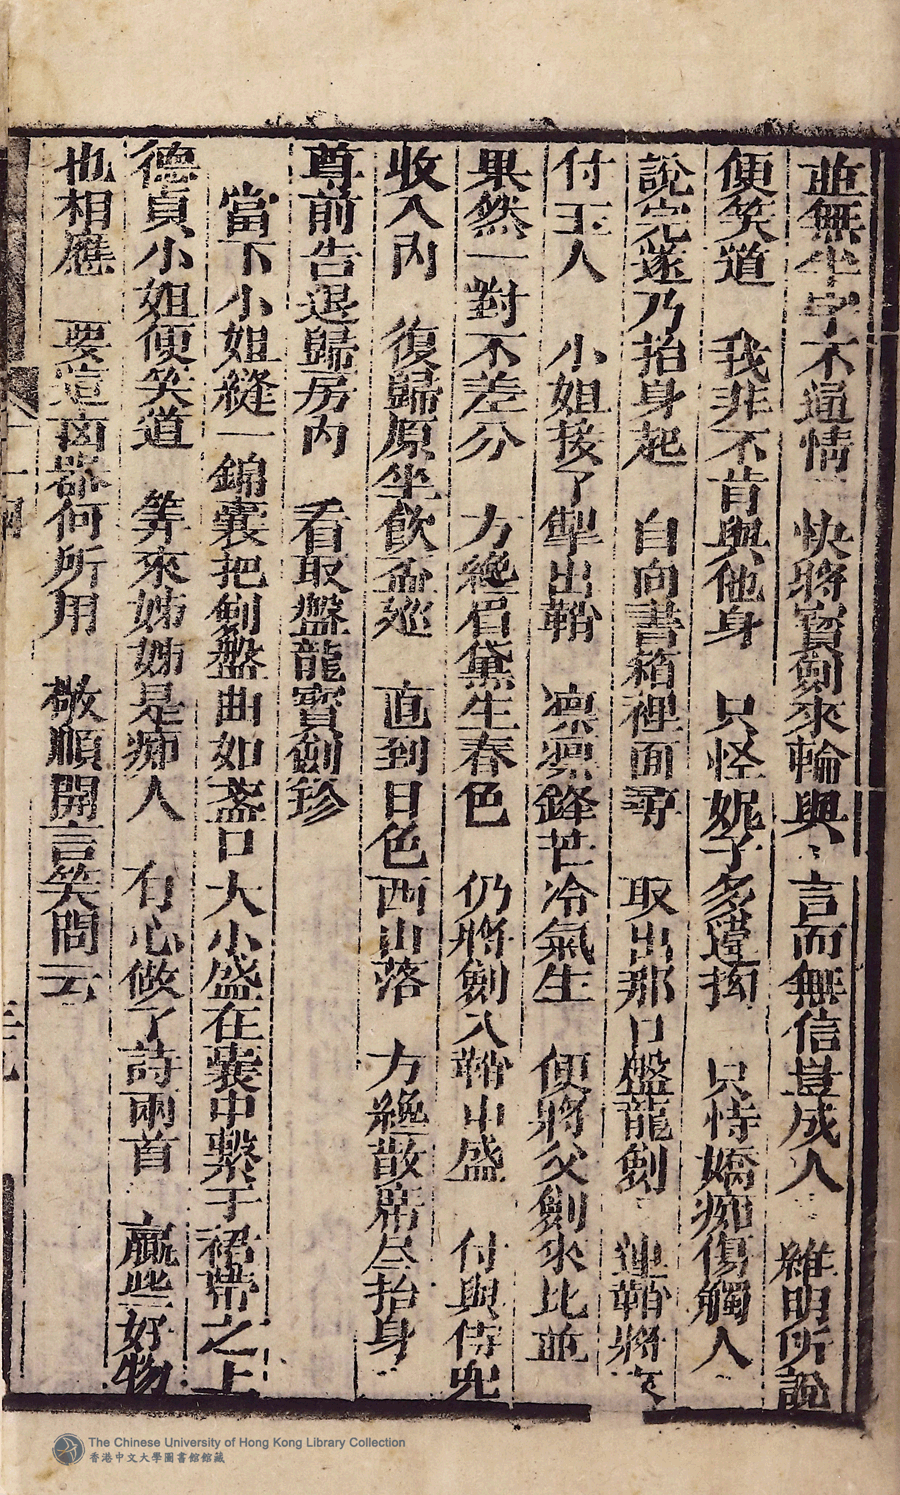 並無半字不通情 快將寶劍來輪與 言而無信豈成人 維明所說
便笑道 我非不肯與他身 只怪妮子多違拗 只恃嬌痴傷觸人
說完遂乃抬身起 自向書箱裡面尋 取出那口盤龍劍 連鞘將來
付玉人 小姐接了掣出鞘 凛凛鋒芒冷氣生 便將父劍來比並
果然一對不差分 方纔眉黛生春色 仍將劍入鞘中盛 付與侍兒
收入內 復歸原坐飲盃巡 直到日色西山落 方纔散席尽抬身
尊前告退歸房內 看取盤龍寶劍珍
當下小姐縫一錦囊把劍盤曲如盞口大小盛在囊中繫于裙帶之上
德貞小姐便笑道 筭來姊姊是痴人 有心做了詩兩首 贏些好物
也相應 要這兩器何所用 敬順開言笑問云
The Chinese University of Hong Kong Library Collection
香港中文大學圖書館館藏